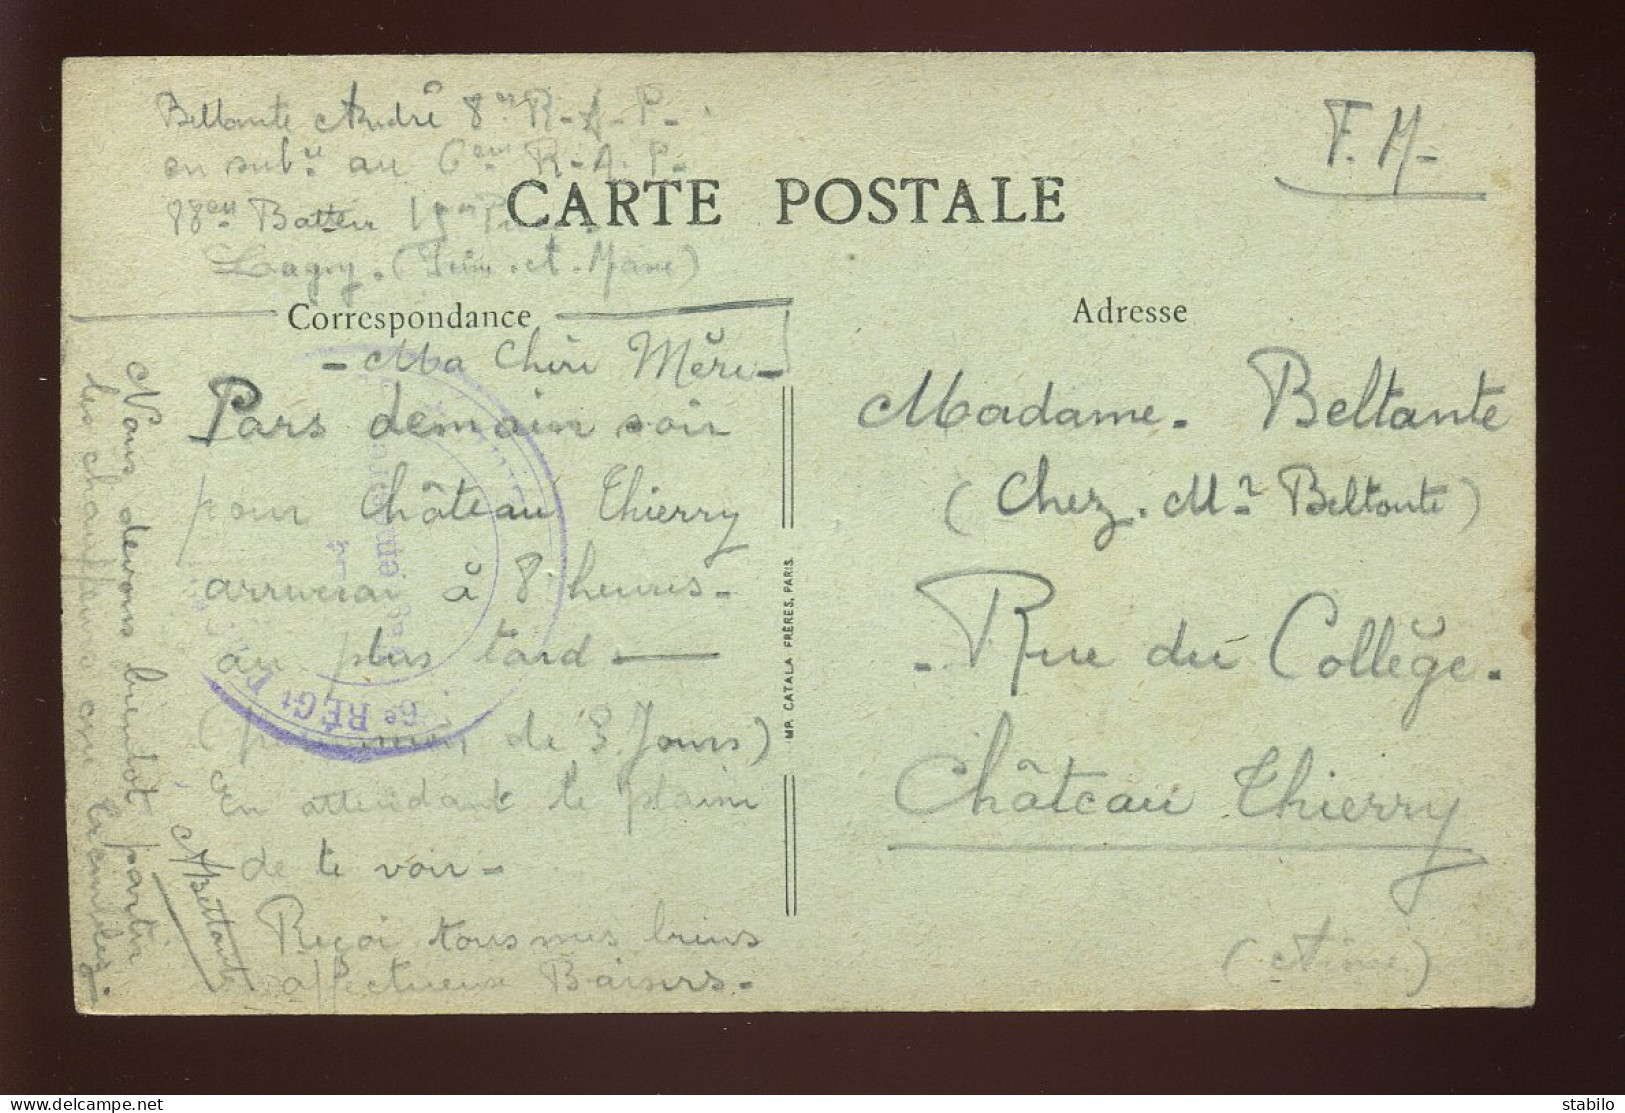 Beltante André 8e R-A-P-
en subce au 6em R-A-P-
Batterie
Lagny. (Seine-et-Marne)
CARTE POSTALE
F.M-
Correspondance
Adresse
- Ma Chère Mère -
Pars demain soir
pour Château Thierry
arriverai à 8 heures-
au plus tard
(permission de 3 Jours)
En attendant le plaisir
de te voir-
Reçoi tous mes biens
affectueux Baisers-
ABeltante
Nous devons bientot partir
les chauffeurs
6e RÉGt
IMP. CATALA FRÈRES, PARIS
Madame. Beltante
(Chez. Mr Beltante)
- Rue du Collège.
Château Thierry
(Aisne)
stabilo